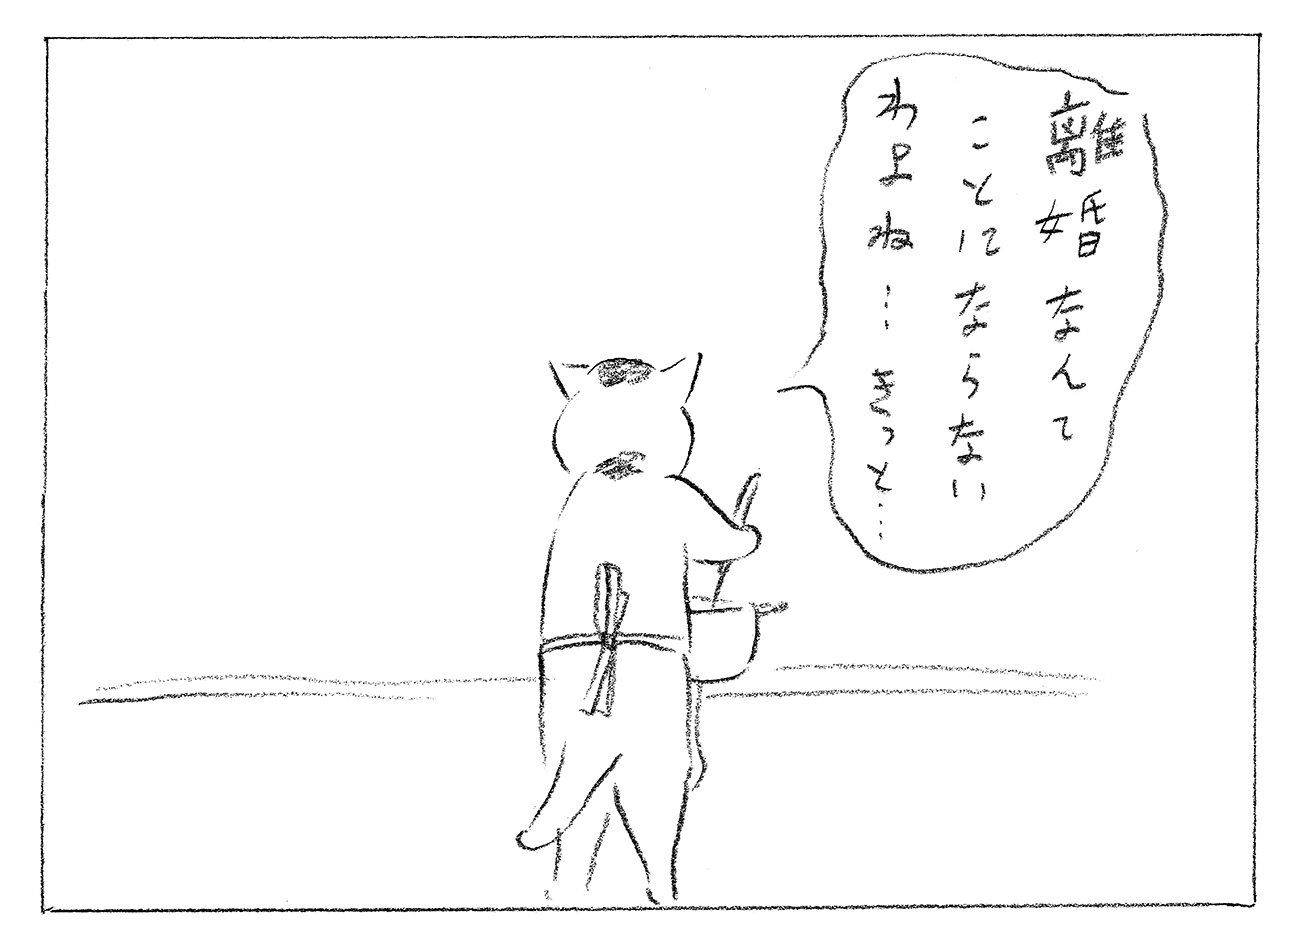 離婚なんて
ことにならない
わよね…きっと…